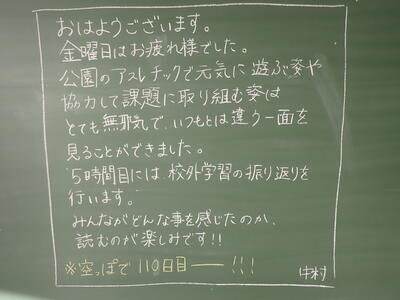 おはようございます。
金曜日はお疲れ様でした。
公園のアスレチックで元気に遊ぶ姿や
協力して課題に取り組む姿は
とても無邪気で、いつもとは違う一面を
見ることができました。
5時間目には、校外学習の振り返りを
行います。
みんながどんな事を感じたのか、
読むのが楽しみです!!
※空っぽで110日目――!!!
中村